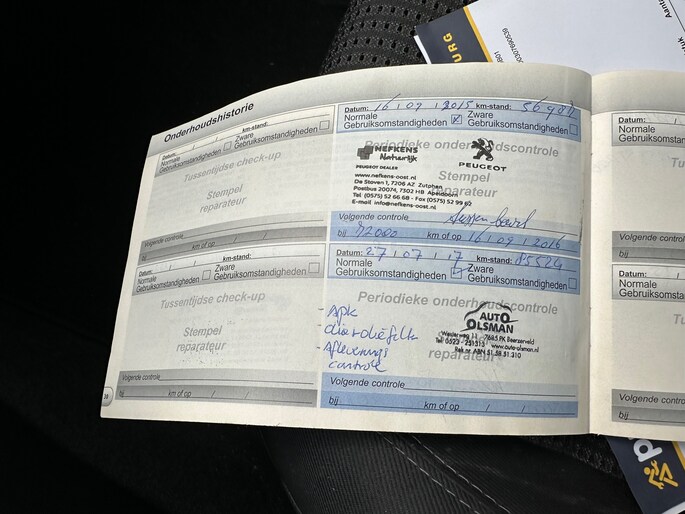 Onderhoudshistorie
Datum: / / km-stand:
Normale Gebruiksomstandigheden
Zware Gebruiksomstandigheden
Tussentijdse check-up
Stempel
reparateur
Volgende controle
bij km of op / /
Datum: / / km-stand:
Normale Gebruiksomstandigheden
Zware Gebruiksomstandigheden
Tussentijdse check-up
Stempel
reparateur
Volgende controle
bij km of op / /
Datum: 16/09/2015 km-stand:
Normale Gebruiksomstandigheden
Zware Gebruiksomstandigheden
Periodieke onderhoudscontrole
NEFKENS
PEUGEOT
PEUGEOT DEALER
Stempel
reparateur
www.nefkens-oost.nl
De Stoven 1, 7206 AZ Zutphen
Postbus 20074, 7302 HB Apeldoorn
Tel (0575) 52 66 68 - Fax (0575) 52 99 62
E-mail info@nefkens-oost.nl
Volgende controle Tussen beurt
bij 72000 km of op 16/09/2016
Datum: 27/07/17 km-stand: 85524
Normale Gebruiksomstandigheden
Zware Gebruiksomstandigheden
Periodieke onderhoudscontrole
- APK
AUTO
OLSMAN
7685 PK Beerzerveld
Tel. 0523 - 251313 www.auto-olsman.nl
reparateur
Aflevering
controle
Volgende controle
bij km of op / /
38
Datum:
Normale
Gebruiksom
Volgende
bij
Datum:
Normale
Gebruiksom
Volgende
bij
URG